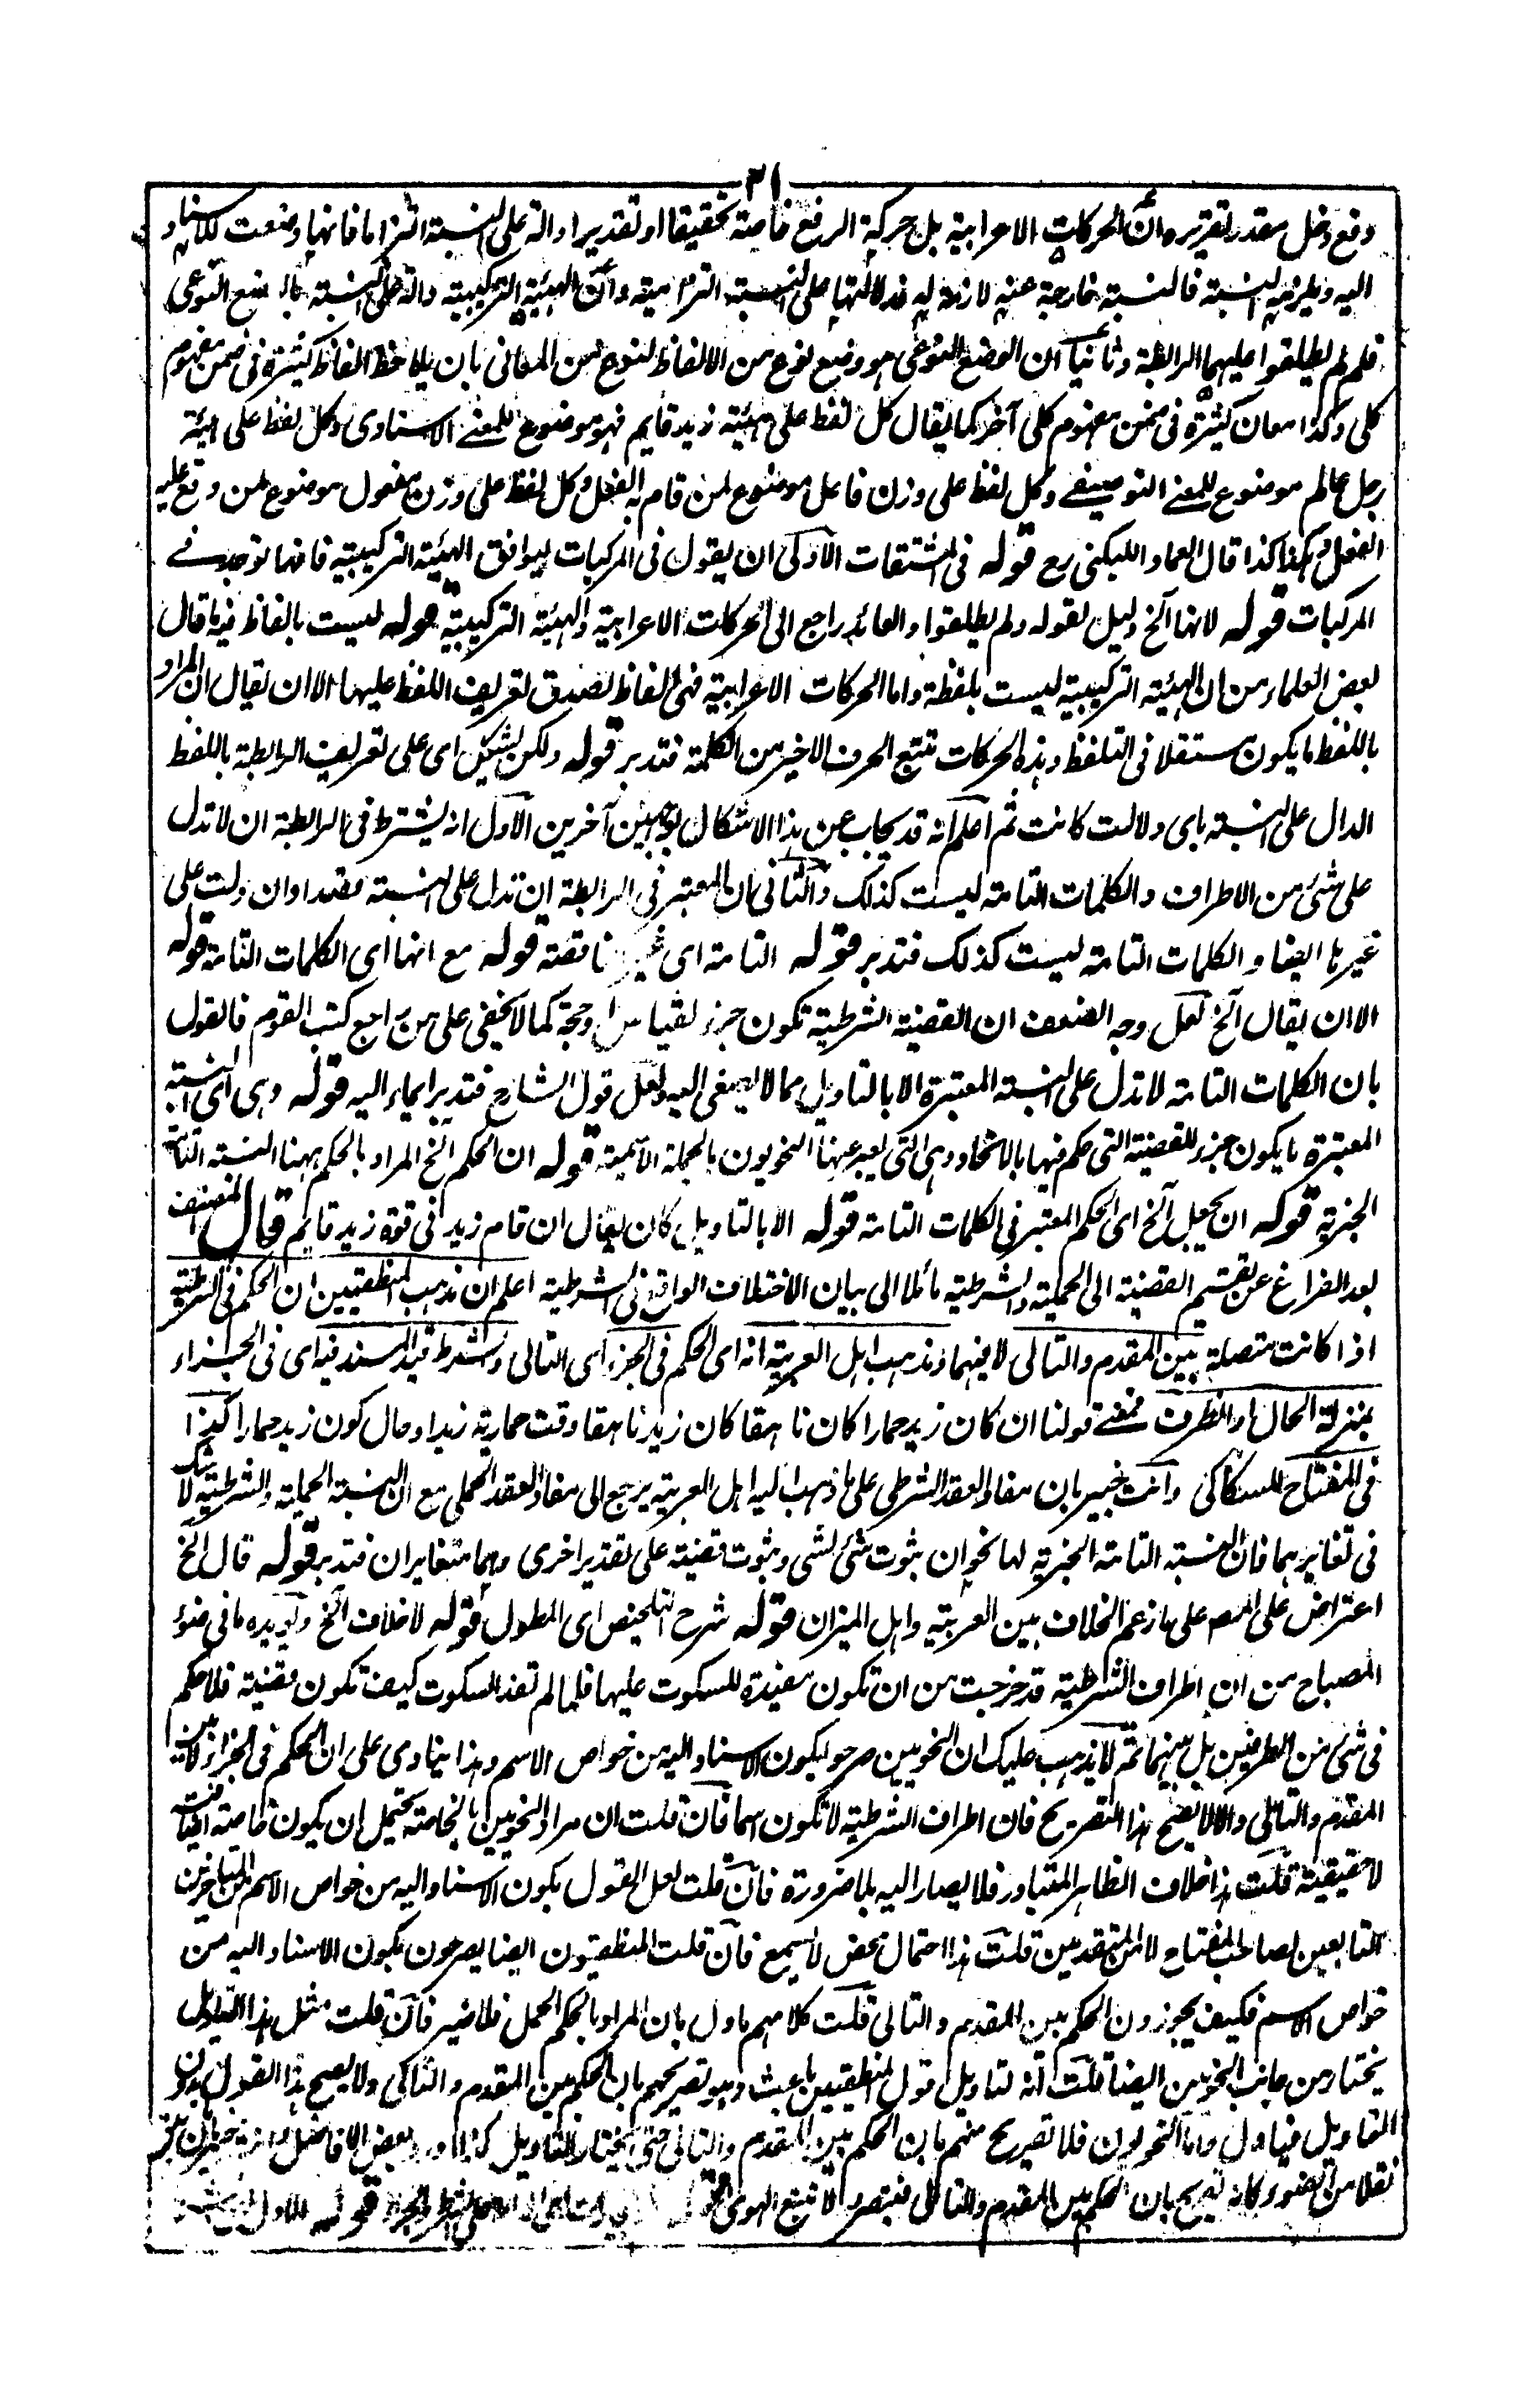 ٣١
دفع دخل مقدر تقريره ان الحركات الاعرابية بل حركة الرفع خاصة تحقيقا او تقديرا دالة على النسبة التزاما فانها وضعت للاسناد
اليه ويلزمه النسبة فالنسبة خارجة عنه لازمة له فدلالتها على النسبة التزامية وان الهيئة التركيبية دالة على النسبة بالوضع النوعى
فلم لم يطلقوا عليهما الرابطة وثانيا ان الوضع النوعى هو وضع نوع من الالفاظ لنوع من المعانى بان يلاحظ الفاظ كثيرة فى ضمن مفهوم
كلى وكذا معان كثيرة فى ضمن مفهوم كلى آخر كما يقال كل لفظ على هيئة زيد قايم فهو موضوع للمعنے الاسنادى وكل لفظ على هيئة
رجل عالم موضوع للمعنے التوصيفے وكل لفظ على وزن فاعل موضوع لمن قام به الفعل وكل لفظ على وزن مفعول موضوع لمن وقع عليه
الفعل وهكذا كذا قال العماد اللبكنى رح قوله فى المشتقات الاولى ان يقول فى المركبات ليوافق الهيئة التركيبية فانها توجد فے
المركبات قوله لانها الخ دليل لقوله ولم يطلقوا والعائد راجع الى الحركات الاعرابية والهيئة التركيبية قوله ليست بالفاظ فيه ما قال
بعض العلماء من ان الهيئة التركيبية ليست بلفظة واما الحركات الاعرابية فهى الفاظ لصدق تعريف اللفظ عليها الا ان يقال ان المراد
باللفظ ما يكون مستقلا فى التلفظ وهذه الحركات تتبع الحرف الاخير من الكلمة فتدبر قوله ولكن يشكل اى على تعريف الرابطة باللفظ
الدال على النسبة باى دلالت كانت ثم اعلم انه قد يجاب عن هذا الاشكال بوجهين آخرين الاول انه يشترط فى الرابطة ان لا تدل
على شئ من الاطراف والكلمات التامة ليست كذلك والثانى ان المعتبر فى الرابطة ان تدل على النسبة مقصدا وان دلت على
غيرها ايضا والكلمات التامة ليست كذلك فتدبر قوله التامة اى غير ناقصة قوله مع انها اى الكلمات التامة قوله
الا ان يقال الخ لعل وجه الضعف ان القضية الشرطية تكون جزء لقياس او حجة كما لا يخفى على من راجع كتب القوم فالقول
بان الكلمات التامة لا تدل على النسبة المعتبرة الا بالتاويل مما لا يصغى اليه ولعل قول الشارح فتدبر ايماء اليه قوله وهى اى النسبة
المعتبرة ما يكون جزء للقضية التى حكم فيها بالاتحاد وهى التى يعبر عنها النحويون بالجملة الاسمية قوله ان الحكم الخ المراد بالحكم ههنا النسبة التامة
الخبرية قوله ان يجعل الخ اى الحكم المعتبر فى الكلمات التامة قوله الا بالتاويل كان يقال ان قام زيد فى قوة زيد قايم قال المصنف
بعد الفراغ عن تقسيم القضية الى الحملية والشرطية مائلا الى بيان الاختلاف الواقع فى الشرطية اعلم ان مذهب المنطقيين ان الحكم فى الشرطية
اذا كانت متصلة بين المقدم والتالى لا فيهما ومذهب اهل العربية انه اى الحكم فى الجزء اى التالى والشرط قيد المسند فيه اى فى الجزاء
بمنزلة الحال او الظرف فمعنے قولنا ان كان زيد حمارا كان ناهقا كان زيد ناهقا وقت حمارية زيد او حال كون زيد حمارا كذا
فى المفتاح للسكاكى وانت خبير بان مفاد العقد الشرطى على ما ذهب اليه اهل العربية يرجع الى مفاد العقد الحملى مع ان النسبة الحملية والشرطية لا شك
فى تغايرهما فان النسبة التامة الخبرية لها نحوان ثبوت شئ لشئ وثبوت قضية على تقدير اخرى وهما متغايران فتدبر قوله قال الخ
اعتراض على المصـ على ما زعم الخلاف بين العربية واهل الميزان قوله شرح التلخيص اى المطول قوله لا خلاف الخ ويؤيده ما فى ضوء
المصباح من ان اطراف الشرطية قد خرجت من ان تكون مفيدة للسكوت عليها فلما لم تفد السكوت كيف تكون قضية فلا حكم
فى شئ من الطرفين بل بينهما ثم لا يذهب عليك ان النحويين صرحوا بكون الاسناد اليه من خواص الاسم وهذا ينادى على ان الحكم فى الجزاء لا بين
المقدم والتالى والا لا يصح هذا التصريح فان اطراف الشرطية لا تكون اسما فان قلت ان مراد النحويين بالخاصة يحتمل ان يكون خاصة اضافية
لا حقيقية قلت هذا خلاف الظاهر المتبادر فلا يصار اليه بلا ضرورة فان قلت لعل القول بكون الاسناد اليه من خواص الاسم من المتاخرين
التابعين لصاحب المفتاح لا من المتقدمين قلت هذا احتمال محض لا يسمع فان قلت المنطقيون ايضا يصرحون بكون الاسناد اليه من
خواص الاسم فكيف يجوزون الحكم بين المقدم والتالى قلت كلامهم ماول بان المراد بالحكم الحمل فلا ضير فان قلت مثل هذا التاويل
يختار من جانب النحويين ايضا قلت انه لتاويل قول المنطقيين باعث وهو تصريحهم بان الحكم بين المقدم والتالى ولا يصح هذا القول بدون
التاويل فياول واما النحويون فلا تصريح منهم بان الحكم بين المقدم والتالى حتى يختار التاويل كذا بعض الافاضل
نقلا من الضوء كانه تصريح بان الحكم بين المقدم والتالى فتبصر ولا تتبع الهوى قوله الاول